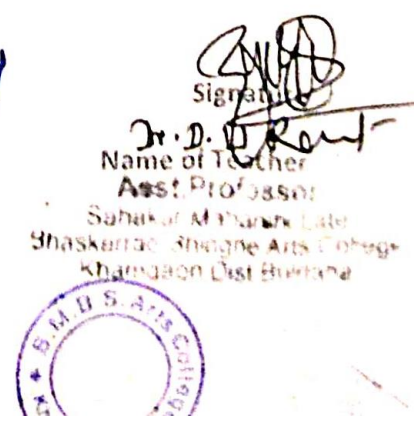 Signature
Dr. D. W. Raut
Name of Teacher
Asst. Professor
Sahakar Maharshi Late
Bhaskarrao Shingne Arts College
Khamgaon Dist Buldana
S.M.B.S. Arts College